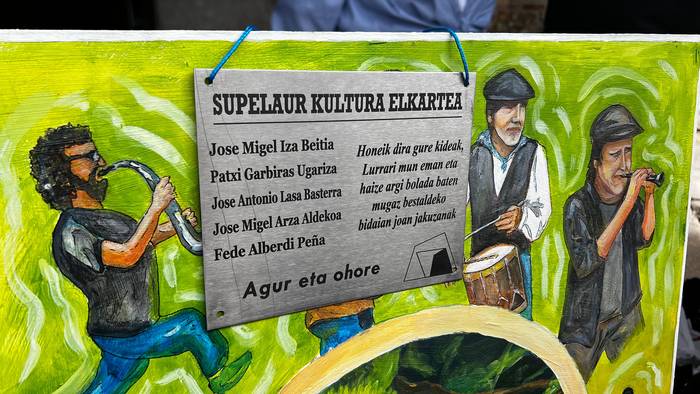 SUPELAUR KULTURA ELKARTEA
Jose Migel Iza Beitia
Patxi Garbiras Ugariza
Jose Antonio Lasa Basterra
Jose Migel Arza Aldekoa
Fede Alberdi Peña
Honeik dira gure kideak,
Lurrari mun eman eta
haize argi bolada baten
mugaz bestaldeko
bidaian joan jakuzanak
Agur eta ohore